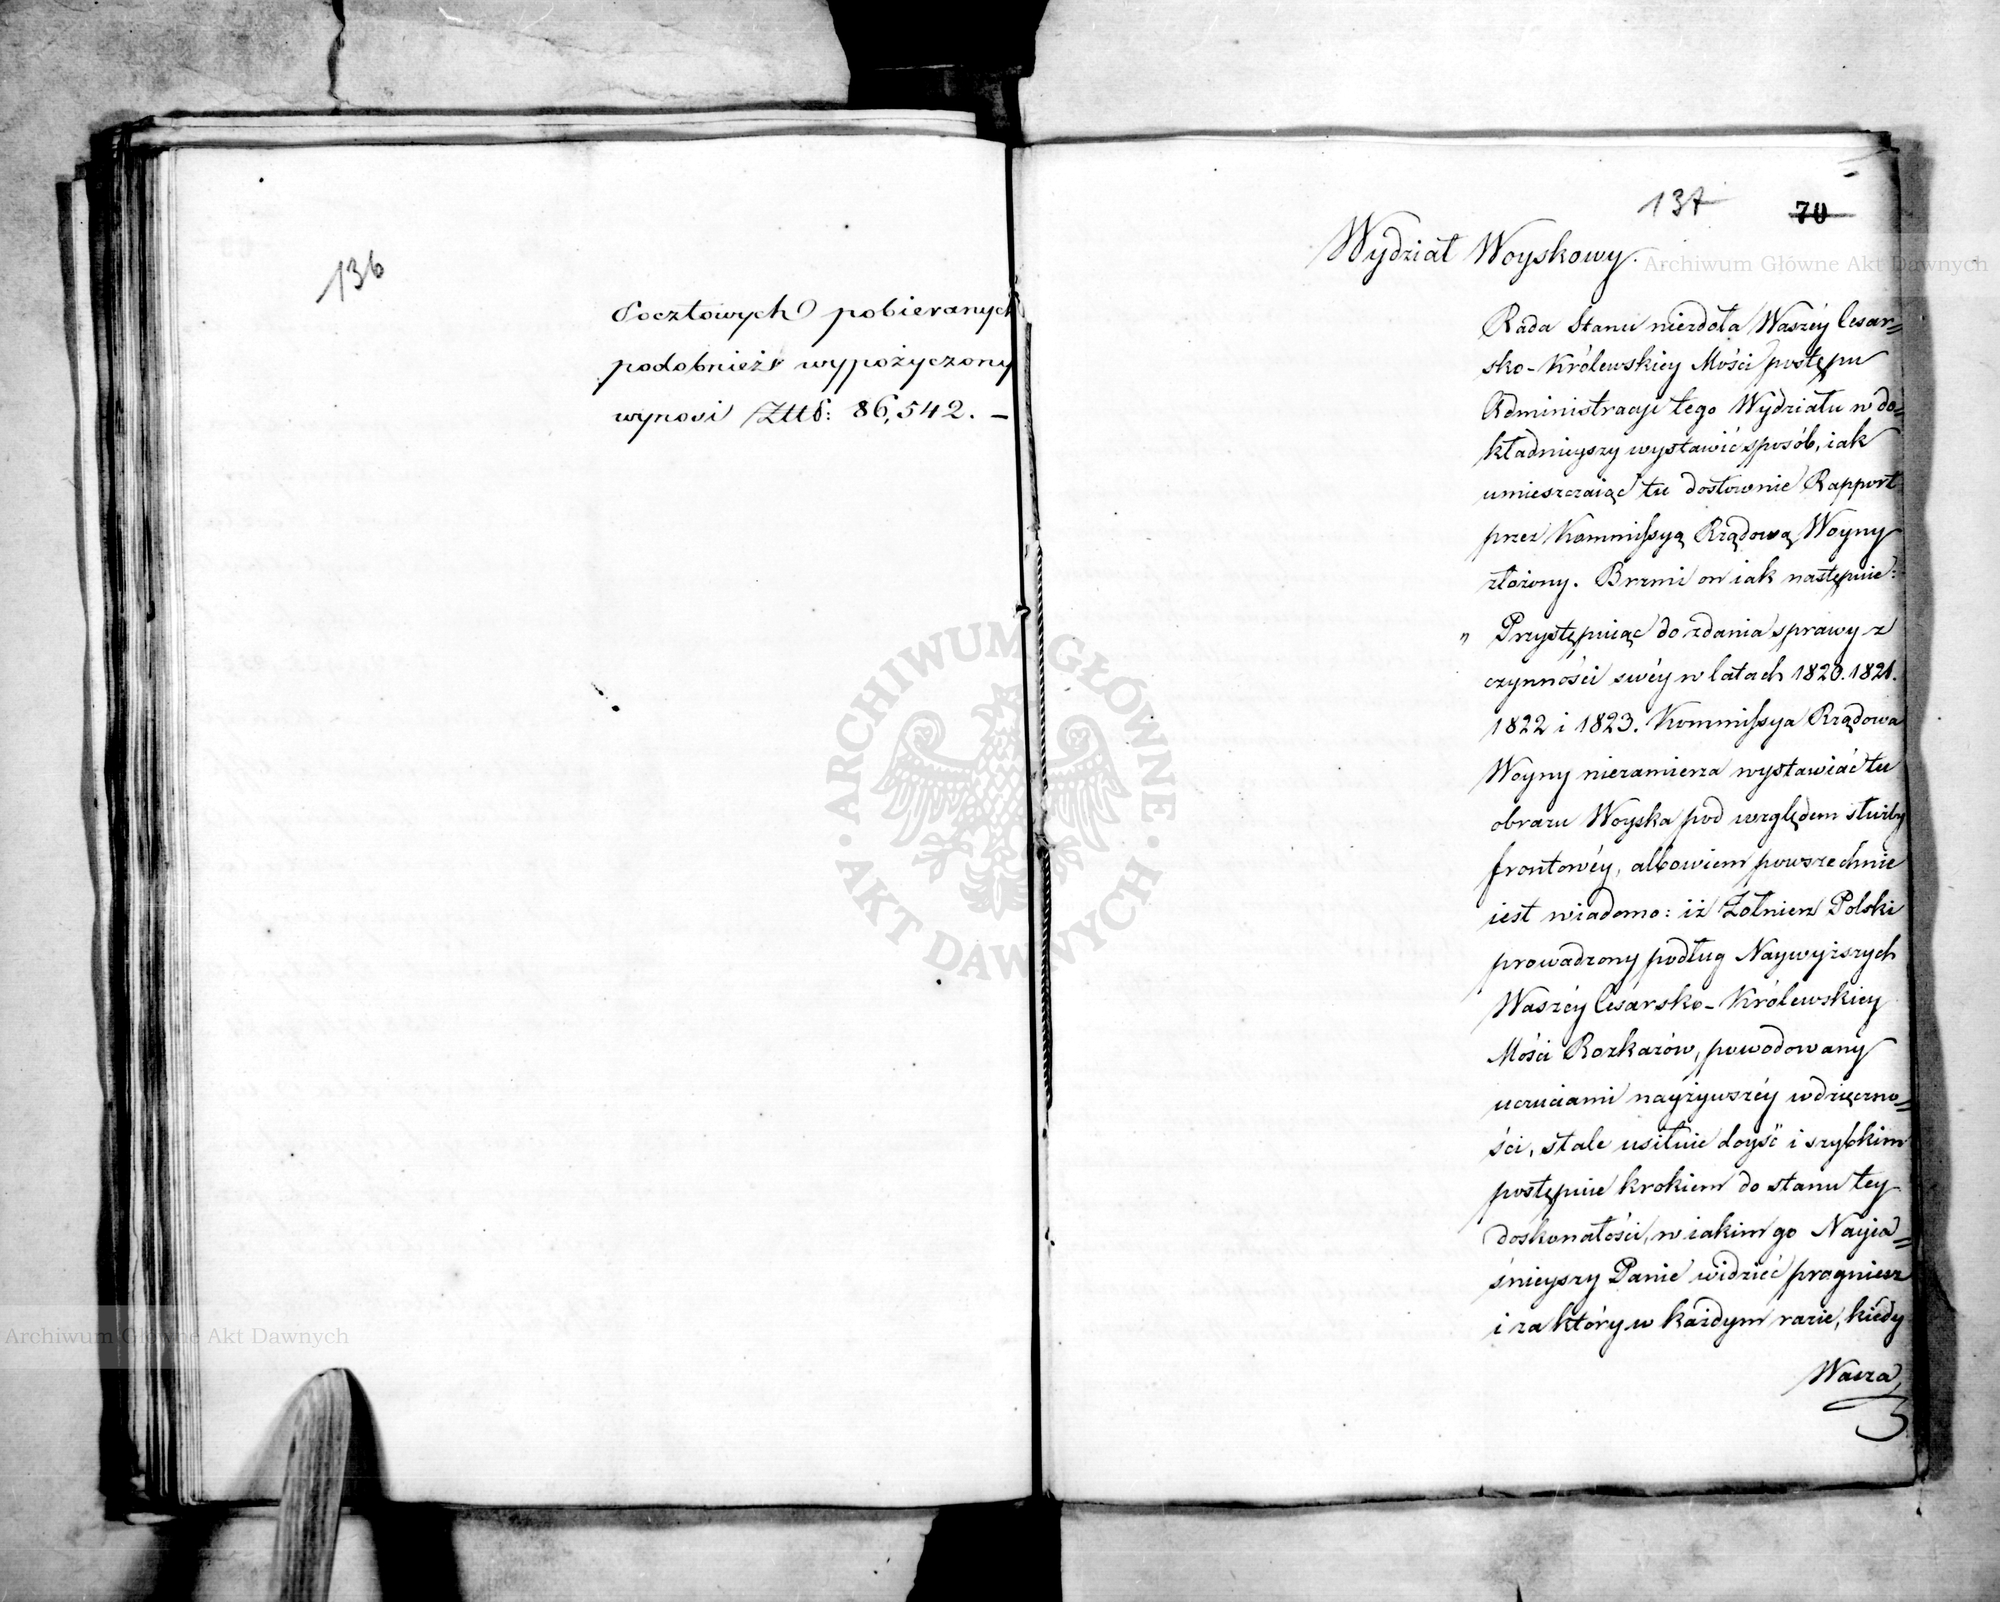 136
Pocztowych pobieranych
podobnież wypożyczony
wynosi Złł: 86,542. –
137 70
Wydział Woyskowy.
Rada Stanu niezdoła Waszéy Cesar=
sko-Królewskiey Mości postępu
Administracyi tego Wydziału w do=
kładnieyszy wystawić sposób, iak
umieszczaiąc tu dosłownie Rapport
przez Kommissyą Rządową Woyny
złożony. Brzmi on iak następuie:
" Przystępuiąc do zdania sprawy z
czynności swéy w latach 1820. 1821.
1822 i 1823. Kommissya Rządowa
Woyny niezamierza wystawiać tu
obrazu Woyska pod względem służby
frontowéy, albowiem powszechnie
iest wiadomo: iż Żołnierz Polski
prowadzony podług Naywyższych
Waszéy Cesarsko-Królewskiey
Mości Rozkazów, powodowany
uczuciami nayżywszéy wdzięczno=
ści, stale usiłuie doyść i szybkim
postępuie krokiem do stanu tey
doskonałości, w iakim go Nayia=
śnieyszy Panie widzieć pragniesz
i za który w każdym razie, kiedy
Wasza
Archiwum Główne Akt Dawnych
Archiwum Główne Akt Dawnych
ARCHIWUM GŁÓWNE · AKT DAWNYCH ·